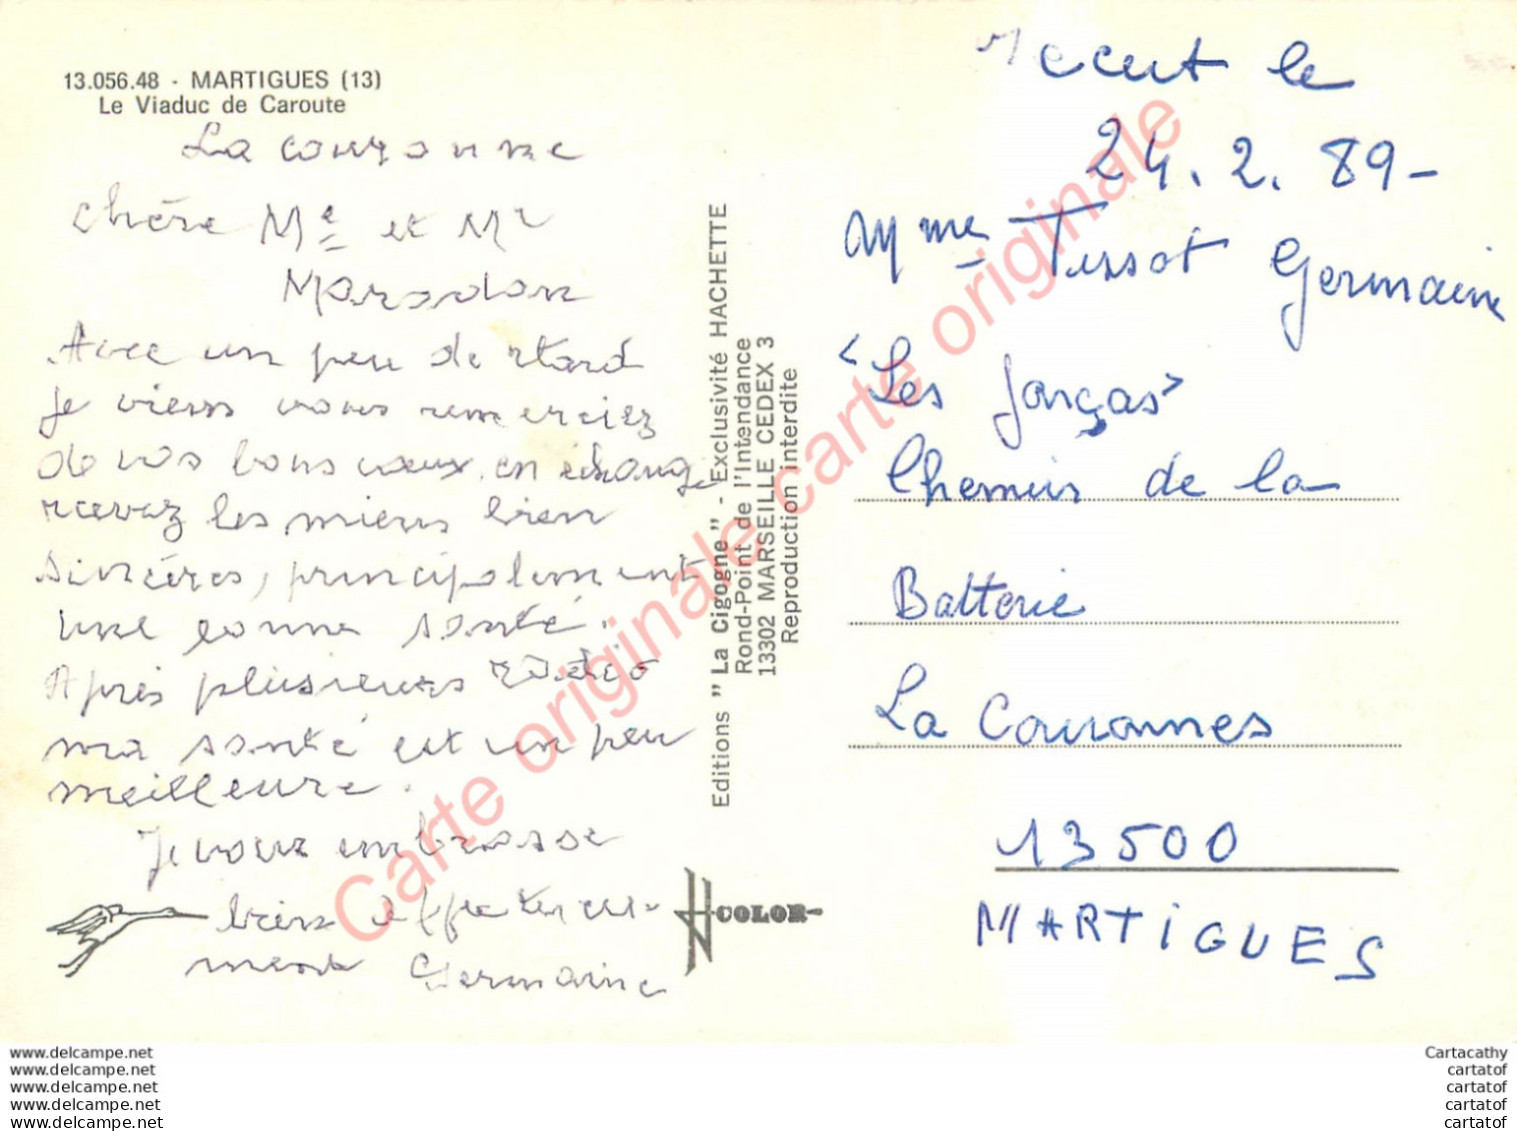 13.056.48 - MARTIGUES (13)
Le Viaduc de Caroute
La couronne
chère Me et Mr
Maradan
Avec un peu de rtard
je viens vous remerciez
de vos bons vœux, en échange
recevez les miens bien
sincères, principalement
une bonne santé.
Après plusieurs Radio
ma santé est un peu
meilleure.
Je vous embrasse
bien affectueu-
ment Germaine
Editions "La Cigogne" - Exclusivité HACHETTE
Rond-Point de l'Intendance
13302 MARSEILLE CEDEX 3
Reproduction interdite
COLOR
recut le
24.2.89-
Mme Tissot Germaine
"Les jonças"
Chemin de la
Batterie
La Couronnes
13500
MARTIGUES
Carte originale carte originale
www.delcampe.net
www.delcampe.net
www.delcampe.net
www.delcampe.net
www.delcampe.net
Cartacathy
cartatof
cartatof
cartatof
cartatof